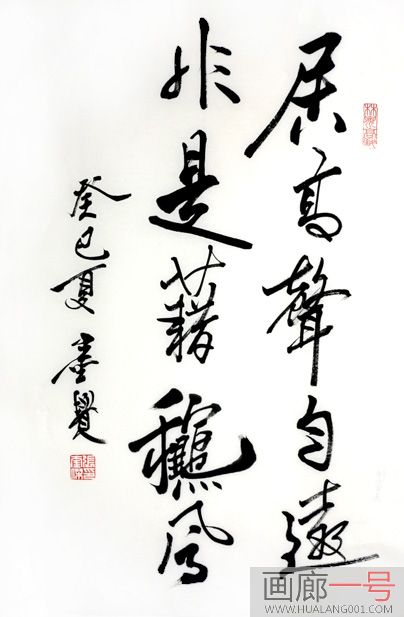 居高聲自遠
非是藉穐風
癸巳夏 覺
画廊一号
WWW.HUALANG001.COM